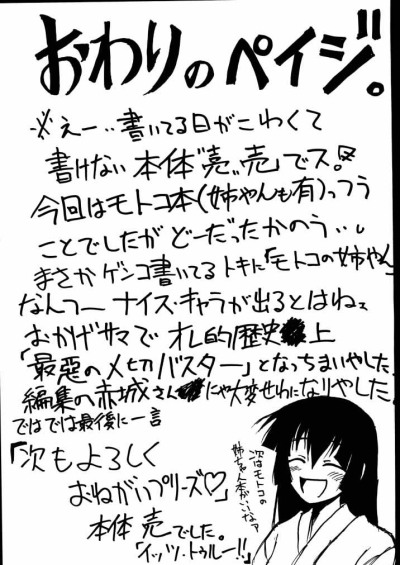 おわりのペイジ。
※えー‥書いてる日がこわくて
書けない本体〝売〟売〟でス。
今回はモトコ本(姉やんも有)っつう
ことでしたがどーだったかのう‥。
まさかゲンコ書いてるトキに「モトコの姉やん」
なんつーナイス・キャラが出るとはねェ
おかげサマでオレ的歴史上
「最悪の〆切バスター」となっちまいやした。
編集の赤城さんにゃ大変せわになりやした。
ではでは最後に一言
「次もよろしく
おねがいプリーズ♡」
本体 売でした。
「イッツ・トゥルー!!」
次はモトコの
姉ちゃん本がいいなァ